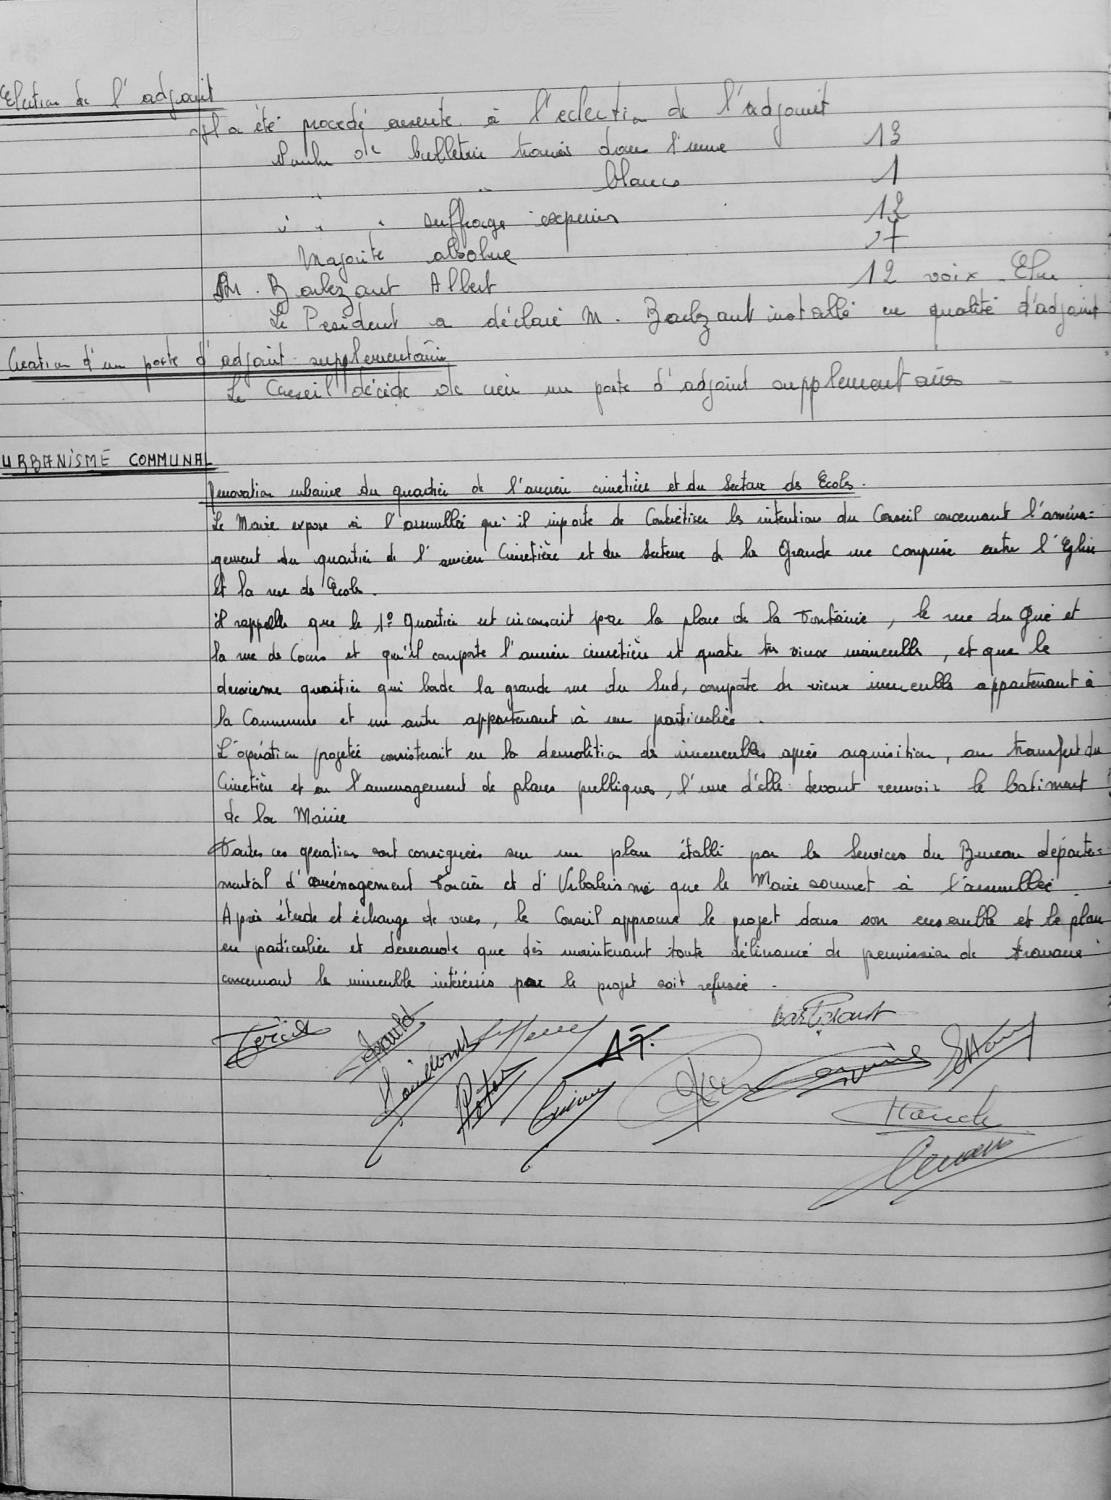 Election de l'adjoint
Il a été procédé ensuite à l'eclection de l'adjoint
Nombre de bulletin trouvés dans l'urne 13
" " blancs 1
" " " suffrage exprimés 12
Majorité absolue 7
M. Boulezaut Albert 12 voix Elu
Le President a déclaré M. Boulzaut installé en qualité d'adjoint
Creation d'un poste d'adjoint supplementaire
Le Conseil décide de créer un poste d'adjoint supplementaire -
URBANISME COMMUNAL
Renovation urbaine du quartier de l'ancien cimetière et du Secteur des Ecoles.
Le Maire expose à l'assemblée qu'il importe de Concrétiser les intentions du Conseil concernant l'aména=
gement du quartier de l'ancien Cimetière et du Secteur de la Grande rue comprise entre l'Eglise
et la rue des Ecoles.
il rappelle que le 1° Quartier est circonscrit par la place de la Fontaine, la rue du Gué et
la rue de Cours et qu'il comporte l'ancien cimetière et quatre très vieux immeubles, et que le
deuxieme quartier qui borde la grande rue du Sud, comporte de vieux immeubles appartenant à
la Commune et un autre appartenant à un particulier.
L'opération projetée consisterait en la demolition des immeubles après acquisition, au transfert du
Cimetière et en l'amenagement de places publiques, l'une d'elle devant recevoir le batiment
de la Mairie
Toutes ces opération sont consignées sur un plan établi par les Services du Bureau départe=
mental d'aménagement foncier et d'Urbanisme que le Maire soumet à l'assemblée
Après étude et échange de vues, le Conseil approuve le projet dans son ensemble et le plan
en particulier et demande que dès maintenant toute délivrance de permission de travaux
concernant les immeuble intéressés par le projet soit refusée.